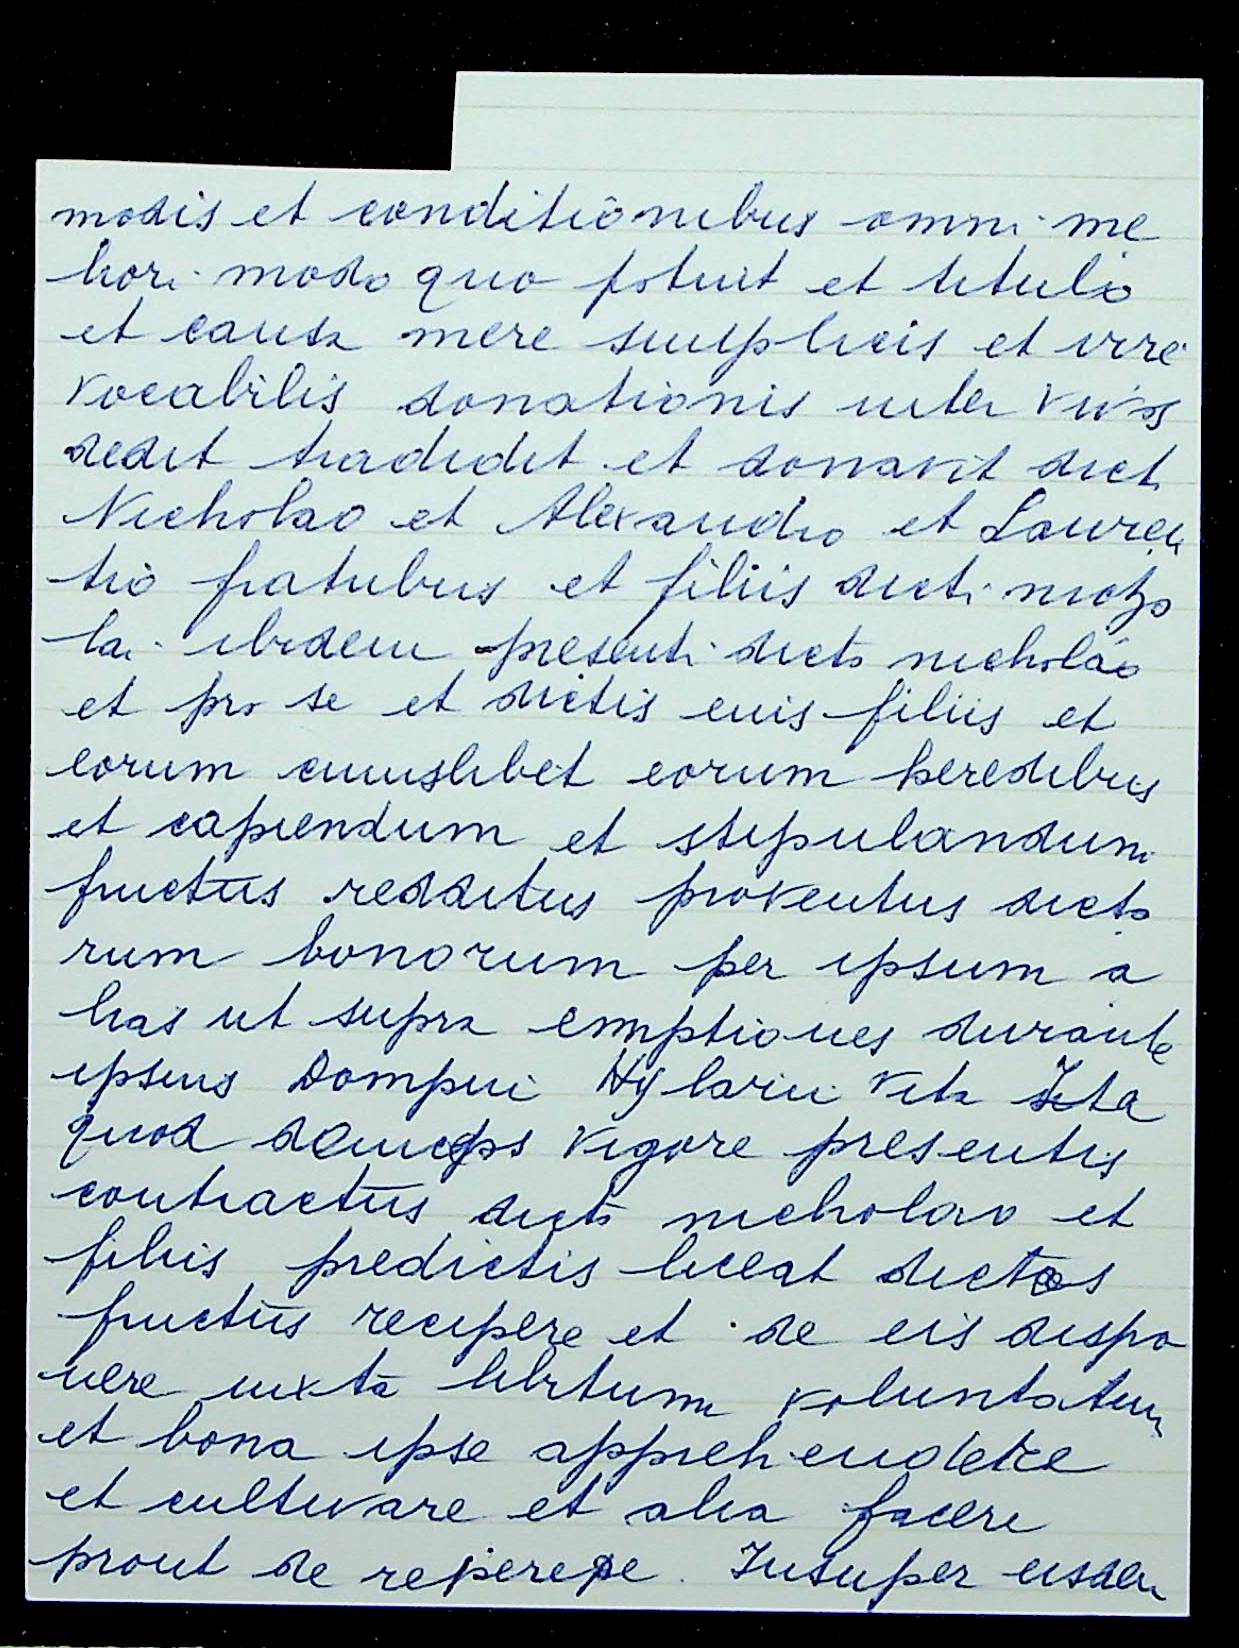 modis et conditionibus omni me
liori modo quo potuit et titulo
et causa mere simplicis et irre
vocabilis donationis inter vivos
dedit tradidit et donavit dict
Nicholao et Alexandro et Lauren
tio fratribus et filiis dicti nicho
lai ibidem presenti dicto nicholao
et pro se et dictis eius filiis et
eorum cuiuslibet eorum heredibus
et capiendum et stipulandum
fructus redditus proventus dicto
rum bonorum per ipsum a
lias ut supra emptiones durante
ipsius Dompni Hylarii vita Ita
quod deinceps vigore presentis
contractus dicto nicholao et
filiis predictis liceat dictos
fructus recipere et de eis dispo
nere iuxta libitum voluntatum
et bona ipse apprehendere
et cultivare et alia facere
prout de reperepe. Insuper eisdem